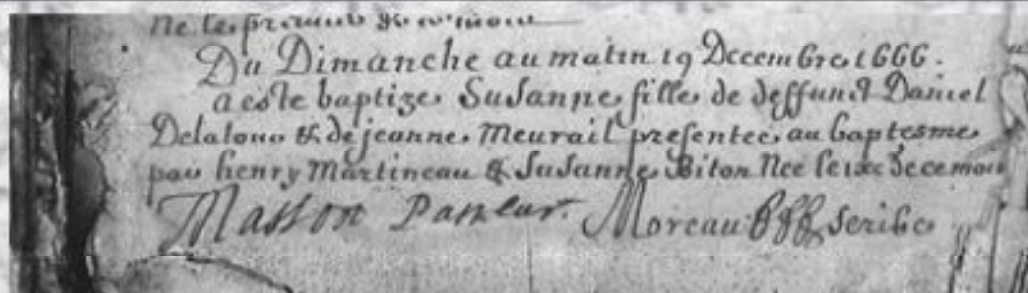 ne le premier
Du Dimanche au matin 19 Decembre 1666.
a este baptize Susanne fille de deffunct Daniel
Delatour & de jeanne Meurail presentee au baptesme
par henry Martineau & Susanne Biton Nee le decemore
Masson Pasteur. Moreau scribe